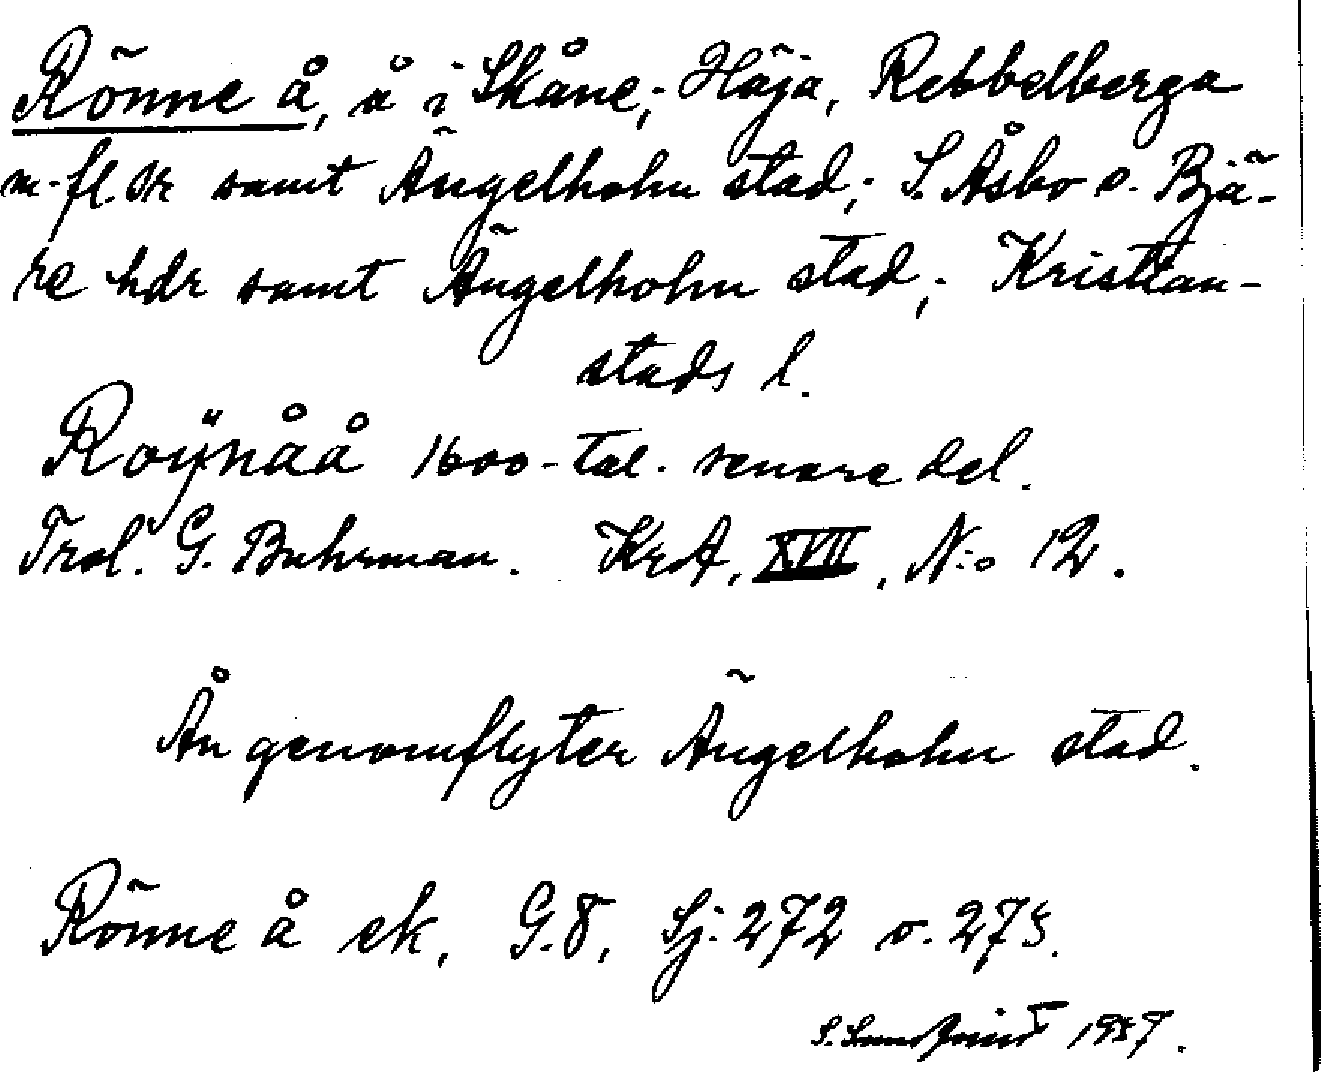 Rönne å, å i Skåne; Höja, Rebbelberga
m. fl. sk samt Ängelholm stad; S. Åsbo o. Bjä-
re hdr samt Ängelholm stad; Kristian-
stads l.
Roÿnåå 1600-tal. senare del.
Trol. G. Buhrman. KrA, XVII, N:o 12.
Ån genomflyter Ängelholm stad.
Rönne å ek, G.8, Sj: 272 o. 275.
S. 1957.